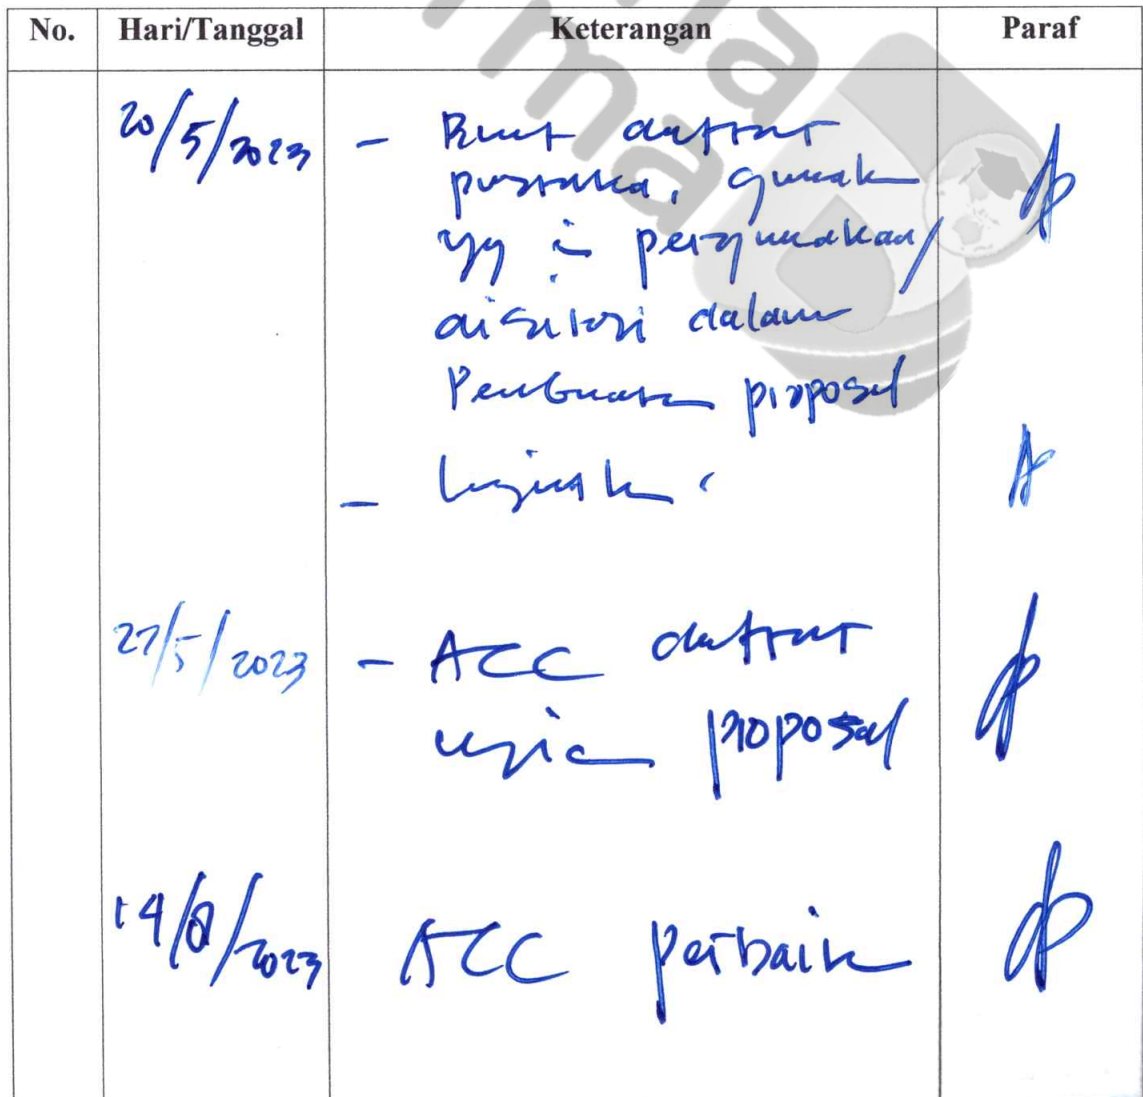 No. Hari/Tanggal Keterangan Paraf
20/5/2023 - Buat daftar
pustaka, gunak
yg di pergunakan/
disitasi dalam
Pembuatan proposal
-
27/5/2023 - ACC daftar
ujian proposal
14/8/2023 ACC perbaik